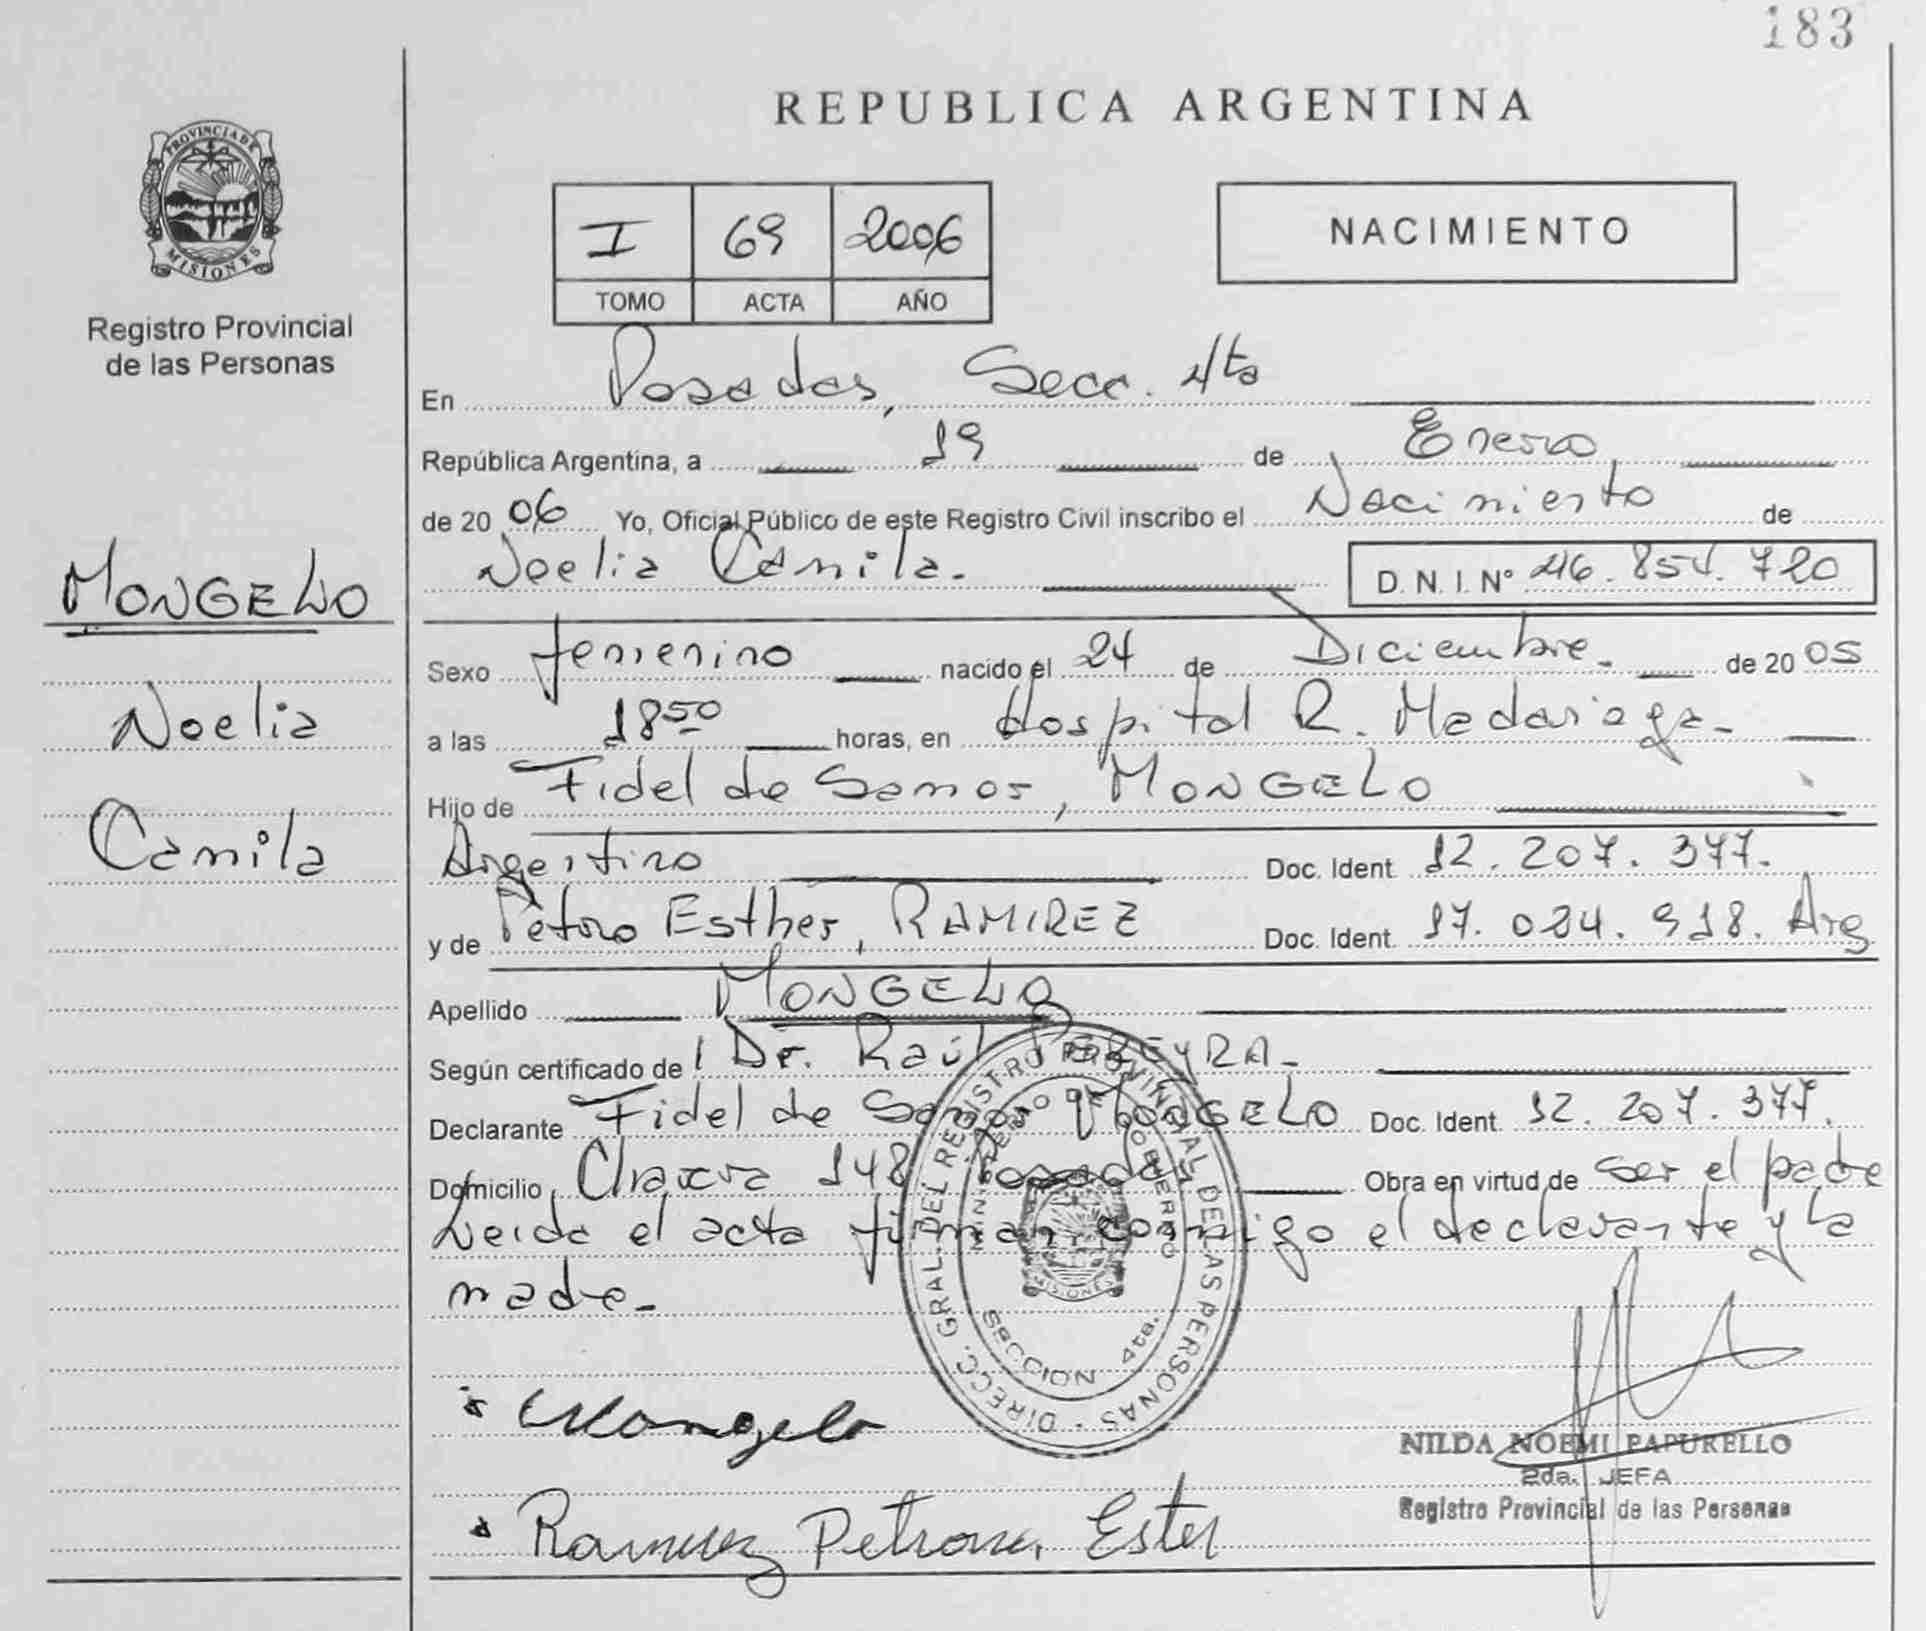 183
REPUBLICA ARGENTINA
PROVINCIA DE
MISIONES
Registro Provincial
de las Personas
I 69 2006
TOMO ACTA AÑO
NACIMIENTO
En Posadas, Secc. 4ta
República Argentina, a 19 de Enero
de 2006 Yo, Oficial Público de este Registro Civil inscribo el Nacimiento de
Noelia Camila. D. N. I. Nº 46.854.720
MONGELO
Noelia
Camila
Sexo femenino nacido el 24 de Diciembre de 2005
a las 18 50 horas, en Hospital R. Madariaga
Hijo de Fidel de Samos, MONGELO
Argentino Doc. Ident. 12.207.377.
y de Petrona Esther, RAMIREZ Doc. Ident. 17.024.918. Arg
Apellido MONGELO
Según certificado de Dr. Raúl PEREYRA
Declarante Fidel de Samos MONGELO Doc. Ident. 12.207.377.
Domicilio 148 Posadas Obra en virtud de ser el padre
Leida el acta firman conmigo el declarante y la
madre.
DIRECC. GRAL. DEL REGISTRO PROVINCIAL DE LAS PERSONAS
MINISTERIO DE GOBIERNO
MISIONES
SECCION 4ta.
Mongelo
NILDA NOEMI PAPURELLO
2da. JEFA
Registro Provincial de las Personas
Ramirez Petrona Ester